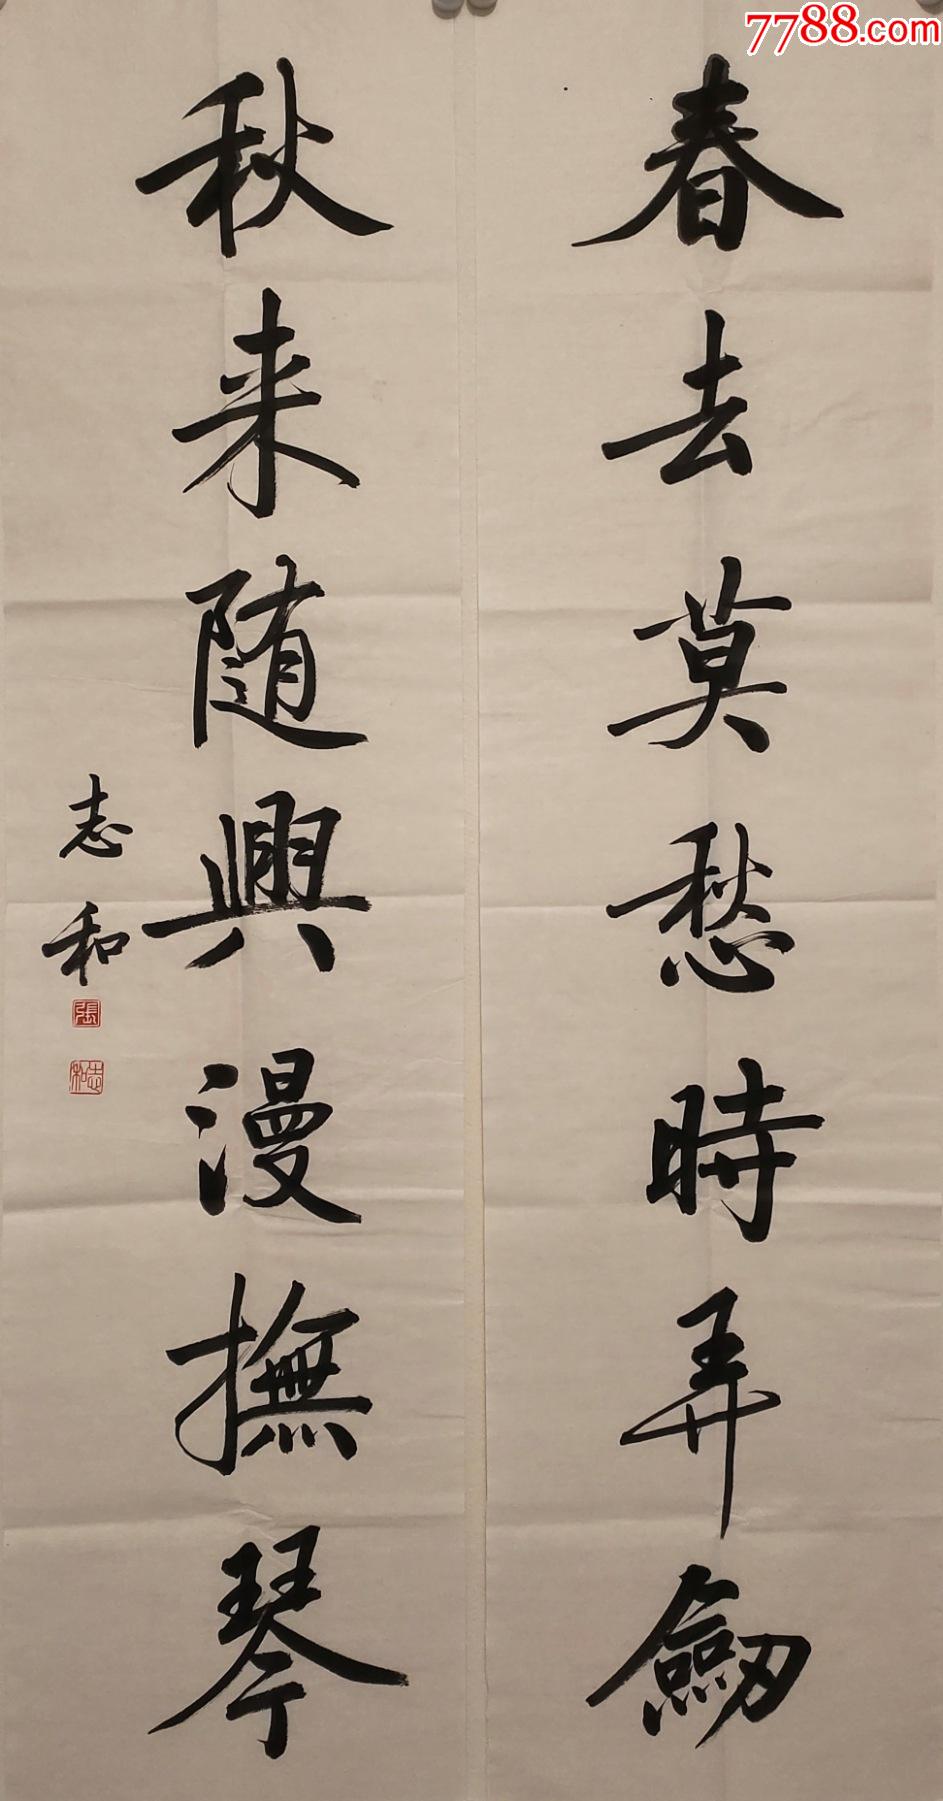 7788.com
春去莫愁時弄劒
秋来随興漫撫琴
志和
張
志和